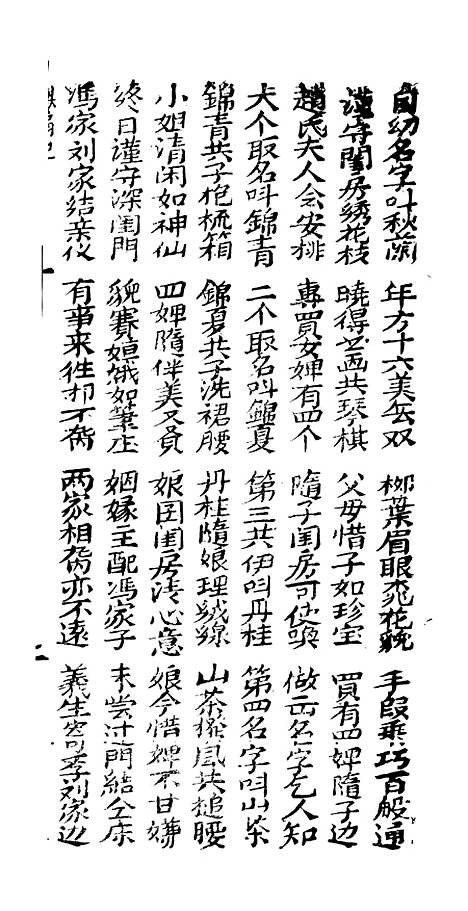 自幼名字叶秋蘭 年方十六美無双 柳葉眉眼桃花貌 手段乘巧百般通
謹守閨房綉花枝 曉得書画共琴棋 父母惜子如珍宝 買有四婢隨子边
趙氏夫人会安排 專買女婢有四个 隨子閨房可使喚 做出名字乞人知
大个取名叫錦青 二个取名叫錦夏 第三共伊叫丹桂 第四名字叫山茶
錦青共子抱梳箱 錦夏共子洗裙腰 丹桂隨娘理絨線 山茶撥風共搥腰
小姐清闲如神仙 四婢隨伴美又員 娘囝閨房清心意 娘今惜婢不甘嫌
終日謹守深閨門 貌賽嫦娥如筆庄 姻嫁主配馮家子 未嘗过門結仝床
馮家刘家結亲仪 有事来往却不奇 两家相奇亦不遠 義生寄李刘家边
二